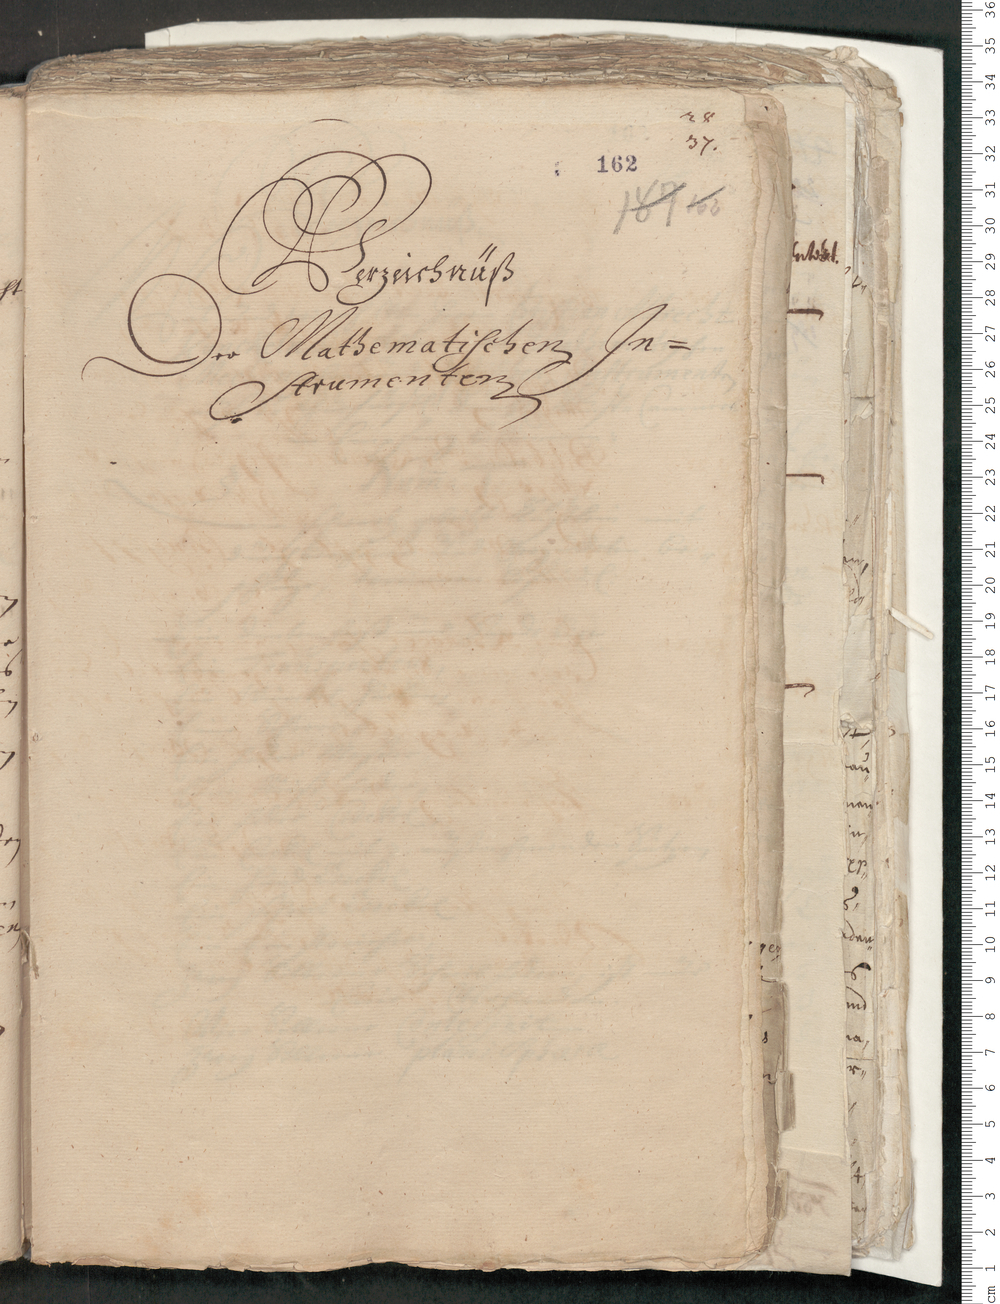 28
37.
162
187
Verzeichnüß
Der Mathematischen In=
strumenten